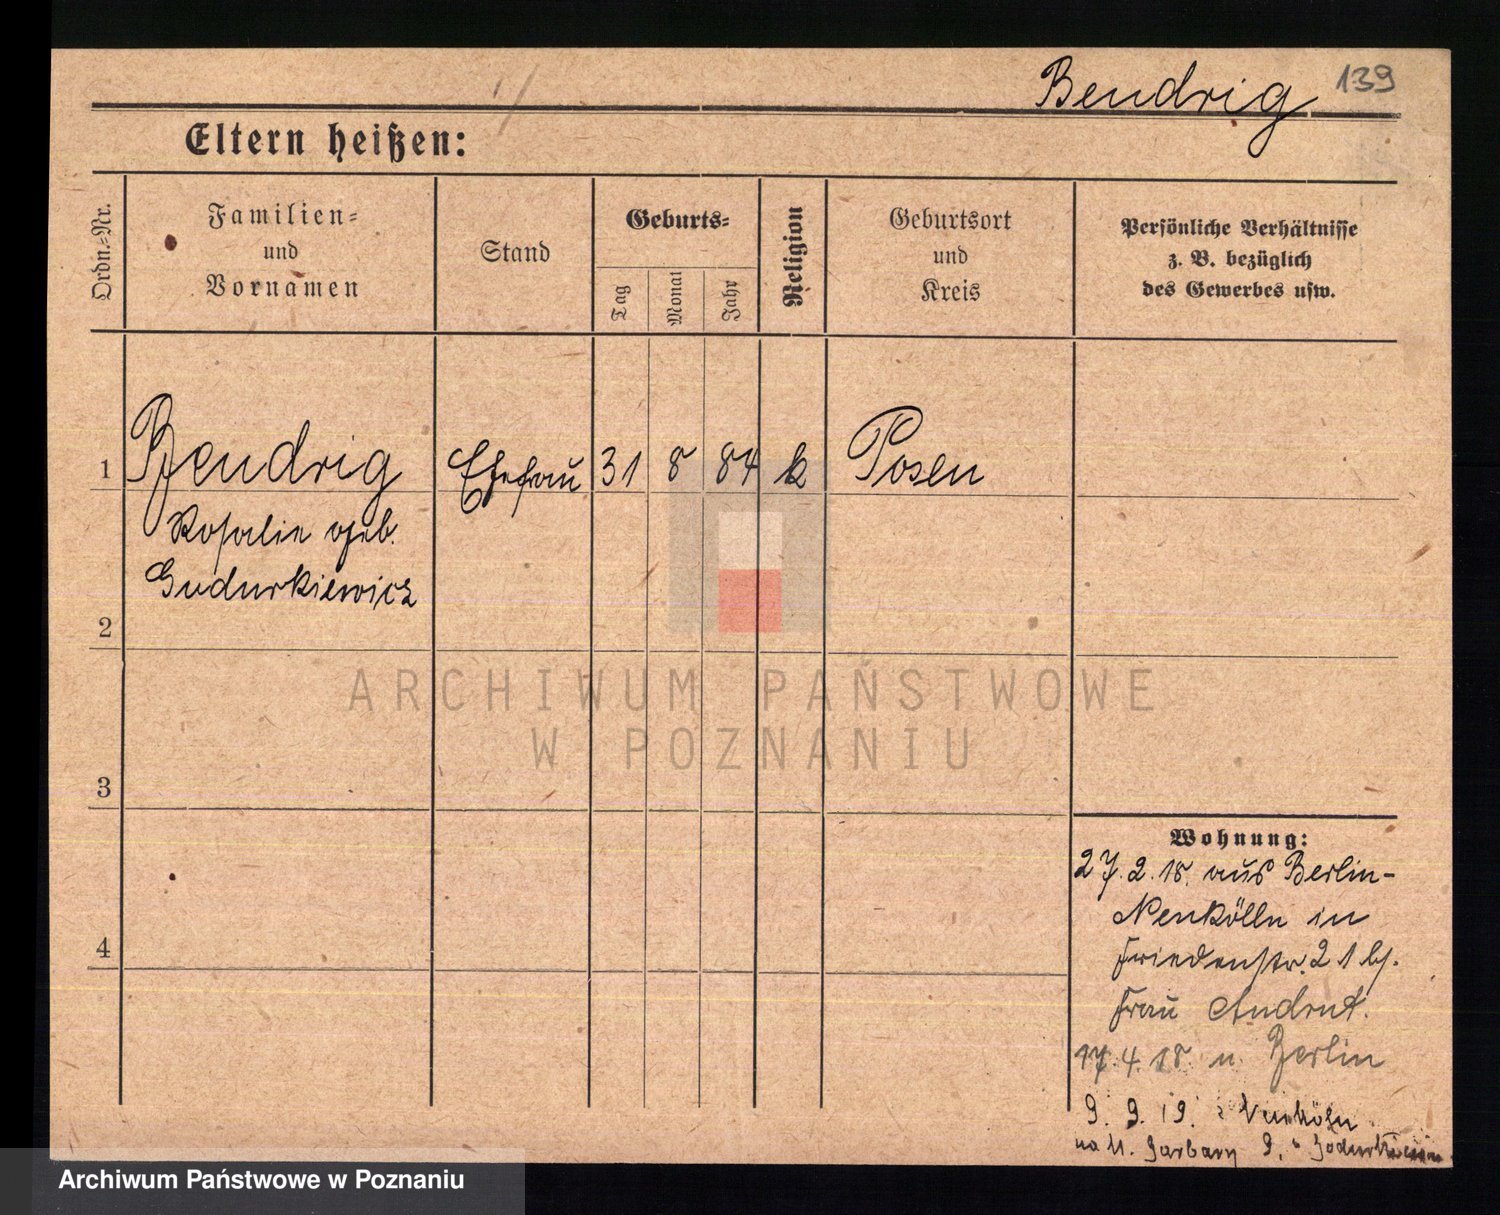 Bendrig 139
Eltern heißen:
Ordn.-Nr.
Familien-
und
Vornamen
Stand
Geburts-
Tag
Monat
Jahr
Religion
Geburtsort
und
Kreis
Persönliche Verhältnisse
z. B. bezüglich
des Gewerbes usw.
1 Bendrig Ehefrau 31 8 84 k Posen
Rosalie geb.
Gudurkiewicz
2
3
4
Wohnung:
27.2.18. aus Berlin-
Neukölln in
Friedenstr. 21 bs.
Frau Andrut.
17.4.18. n. Berlin
9. 9. 19. Neukölln
na U. Garbary 9.
ARCHIWUM PAŃSTWOWE
W POZNANIU
Archiwum Państwowe w Poznaniu